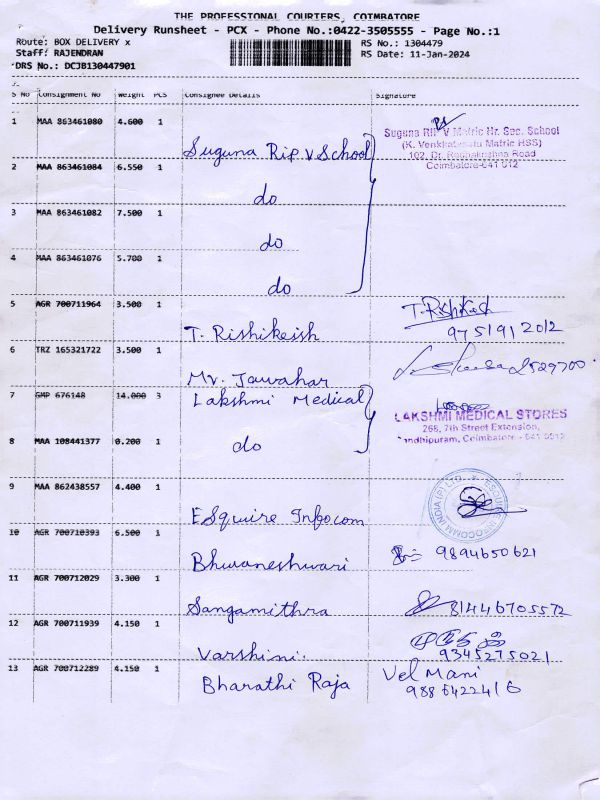 THE PROFESSIONAL COURIERS, COIMBATORE
Delivery Runsheet - PCX - Phone No.:0422-3505555 - Page No.:1
Route: BOX DELIVERY x RS No.: 1304479
Staff: RAJENDRAN RS Date: 11-Jan-2024
DRS No.: DCJB130447901
S No Consignment No Weight PCS Consignee Details Signature
1 MAA 863461080 4.600 1
Suguna RIP V School
Suguna RIP V Matric Hr. Sec. School
(K. Venkatesalu Matric HSS)
102, Dr. Road
Coimbatore-641 012
2 MAA 863461084 6.550 1
do
3 MAA 863461082 7.500 1
do
4 MAA 863461076 5.700 1
do
5 AGR 700711964 3.500 1
T. Rishikesh
T. Rishikesh
9751912012
6 TRZ 165321722 3.500 1
Mr. Jawahar
7 GMP 676148 14.000 3
Lakshmi Medical
LAKSHMI MEDICAL STORES
268, 7th Street Extension,
Gandhipuram, Coimbatore - 641 0012
8 MAA 108441377 0.200 1
do
9 MAA 862438557 4.400 1
ESquire Infocom
ESQUIRE INFOCOMM INDIA (P) LTD
10 AGR 700710393 6.500 1
Bhuvaneshwari 9894650621
11 AGR 700712029 3.300 1
Sangamithra 81446705572
12 AGR 700711939 4.150 1
Varshini. 9345275021
13 AGR 700712289 4.150 1
Bharathi Raja
Vel Mani
9886422416